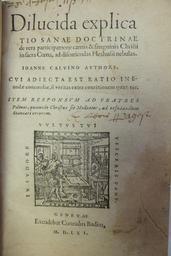 Dilucida explica
TIO SANAE DOCTRINAE
de vera participatione carnis & sanguinis Christi
in sacra Cœna, ad discutiendas Heshusii nebulas.
IOANNE CALVINO AUTHORE.
CVI ADIECTA EST RATIO INE-
undæ concordiæ, si veritas extra contentionem quæritur.
ITEM RESPONSVM AD FRATRES
Polonos, quomodo Christus sit Mediator, ad
VVLTVS TVI
GENEVAE
Excudebat Conradus Badius.
M. D. LXI.